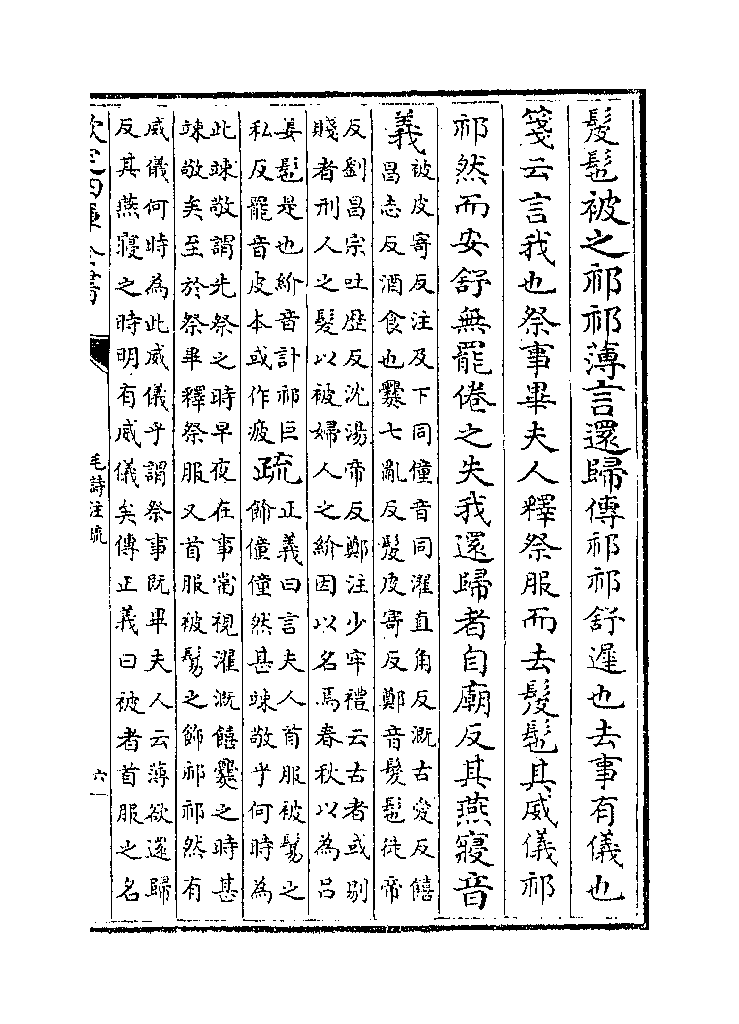 髲髢被之祁祁薄言還歸傳祁祁舒遲也去事有儀也
箋云言我也祭事畢夫人釋祭服而去髲髢其威儀祁
祁然而安舒無罷倦之失我還歸者自廟反其燕寢音
義
被皮寄反注及下同僮音同濯直角反溉古愛反饎
昌志反酒食也爨七亂反髲皮寄反鄭音髲髢徒帝
反劉昌宗吐歷反沈湯帝反鄭注少牢禮云古者或剔
賤者刑人之髮以被婦人之紒因以名焉春秋以為呂
姜髢是也紒音計祁巨
私反罷音皮本或作疲
疏
正義曰言夫人首服被鬄之
飾僮僮然甚竦敬乎何時為
此竦敬謂先祭之時早夜在事當視濯溉饎爨之時甚
竦敬矣至於祭畢釋祭服又首服被鬄之飾祁祁然有
威儀何時為此威儀乎謂祭事既畢夫人云薄欲還歸
反其燕寢之時明有威儀矣傳正義曰被者首服之名
欽定四庫全書
毛詩注疏
六